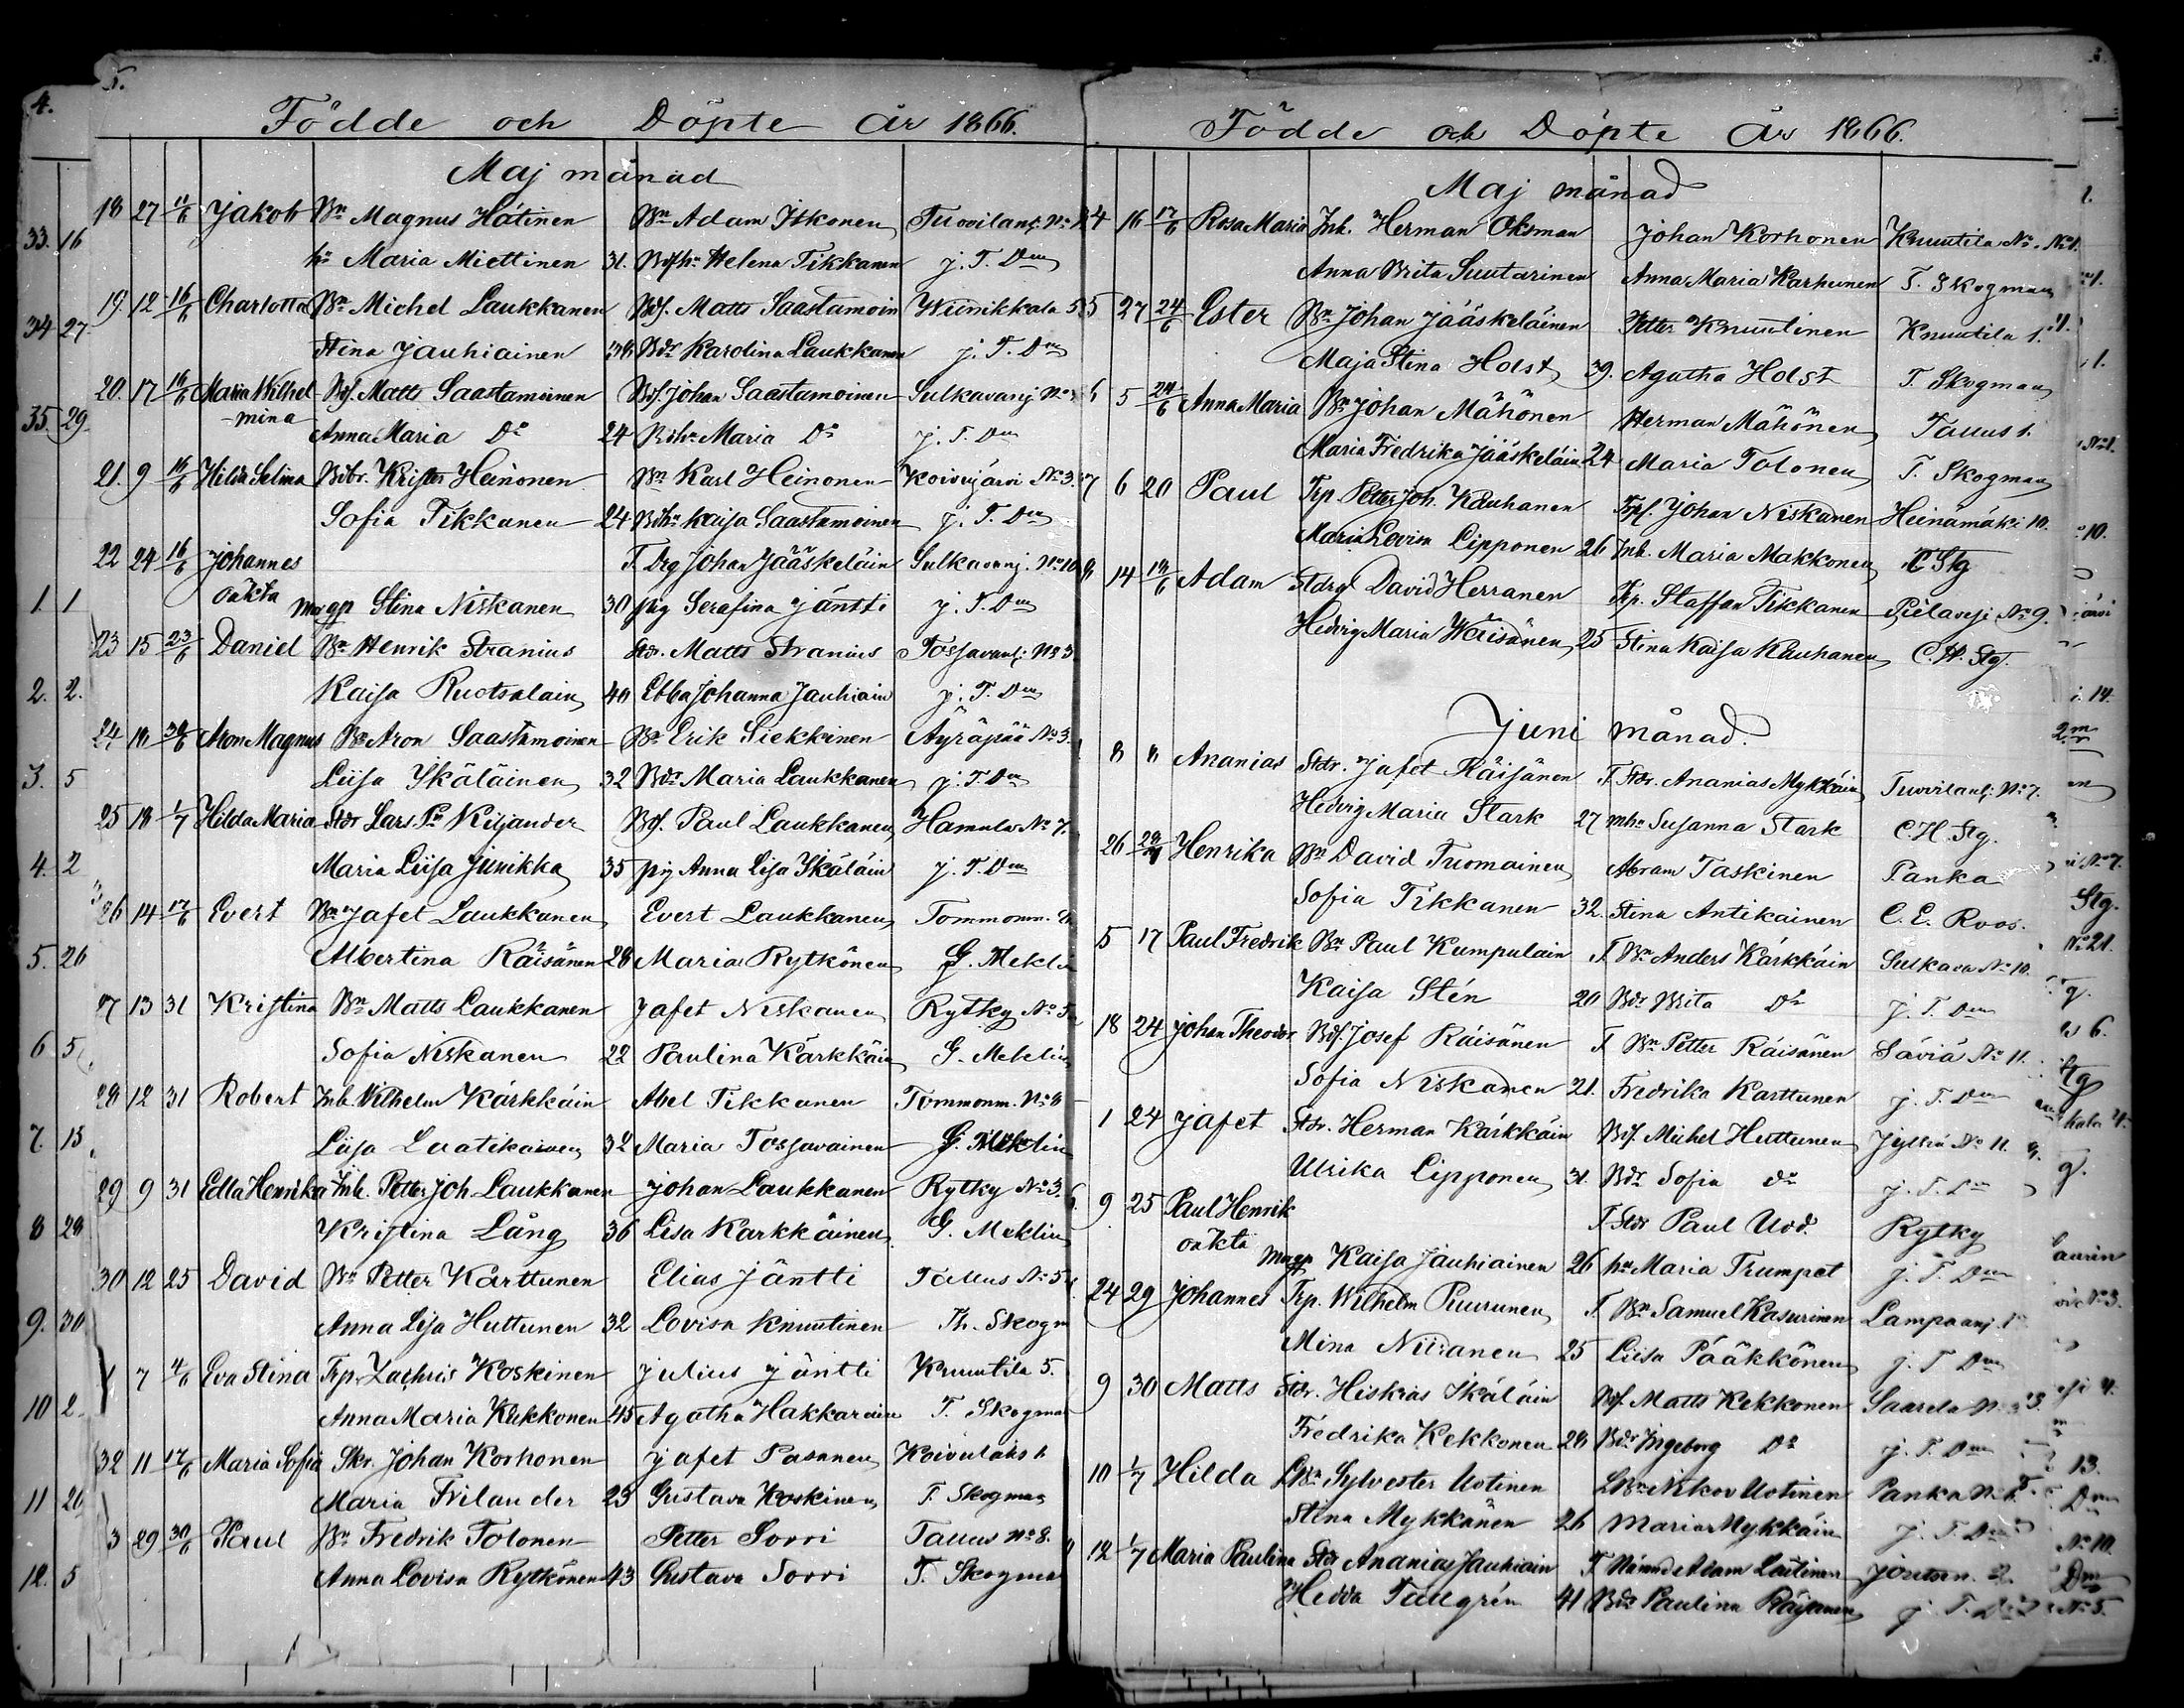 5.
Födde och Döpte år 1866.
Maj månad
18 27 11/6 Jakob Bn Magnus Hätinen Bn Adam Itkonen Tuovilanj. No
hu Maria Miettinen 31. Helena Tikkanen j. T. Dm
19. 12 16/6 Charlotta Bn Michel Laukkanen Bds. Matts Saastamoin Wiinikkala 5
Stina Jauhiainen 38 Bdr Karolina Laukkanen j. T. Dm
20. 17 16/6 Maria Wilhel Bds. Matts Saastamoinen Bds. Johan Saastamoinen Sulkavanj No
-mina
Anna Maria Do 24 Maria Do j. T. Dm
21. 9 16/6 Hilda Selina Bdbr. Krister Heinonen Bn Karl Heinonen Koivujärvi No 3.
Sofia Tikkanen 24 Kaisa Saastamoinen j. T. Dm
22 24 16/6 Johannes T. Drg Johan Jääskeläin Sulkavanj. No 10
oäkta magp Stina Niskanen 30 pig Serafina Jäntti j. T. Dm
23 15 23/6 Daniel Bn Henrik Stranius Sdr. Matts Stranius Tossavanlj. No 3
Kaisa Ruotsalain 40 Ebba Johanna Jauhiain j. T. Dm
24 10 30/6 Aron Magnus Bn Aron Saastamoinen Bn Erik Siekkinen Äyräpää No 3.
Liisa Ikäläinen 32 Bdr Maria Laukkanen j. T. Dm
25 18 1/7 Hilda Maria Stdr Lars Pr Kiljander Bds. Paul Laukkanen Hamula No 7.
Maria Liisa Junikka 35 pig Anna Lisa Ikäläin j. T. Dm
26 14 17/6 Evert Bn Jafet Laukkanen Evert Laukkanen Tommonm.
Albertina Räisänen 28 Maria Rytkönen G. Meklin
27 13 31 Kristina Bn Matts Laukkanen Jafet Niskanen Rytky No 5
Sofia Niskanen 22 Paulina Kärkkäin G. Meklin
28 12 31 Robert Inh. Wilhelm Kärkkäin Abel Tikkanen Tommonm. No 8
Liisa Laatikainen 32 Maria Tossavainen G. Meklin
29 9 31 Edla Henrika Inh. Petter Joh. Laukkanen Johan Laukkanen Rytky No 3.
Kristina Lång 36 Lisa Karkkäinen G. Meklin
30 12 25 David Bn Petter Karttunen Elias Jäntti Tallus No 5
Anna Lisa Huttunen 32 Lovisa Knuutinen Th. Skogm
7 4/6 Eva Stina Trp. Zachris Koskinen Julius Jäntti Knuutila 5.
Anna Maria Kukkonen 45 Agatha Hakkarain T. Skogman
32 11 17/6 Maria Sofia Skr. Johan Korhonen Jafet Pasanen Koivulaks 1
Maria Frilander 23 Gustava Koskinen T. Skogman
3 29 30/6 Paul Bn Fredrik Tolonen Petter Sorri Tallus No 8.
Anna Lovisa Rytkönen 43 Gustava Sorri T. Skogman
Födde och Döpte År 1866.
Maj månad
34 16 17/6 Rosa Maria Inh. Herman Oksman Johan Korhonen Knuutila No.
Anna Brita Suutarinen Anna Maria Karhunen T. Skogman
35 27 24/6 Ester Bn Johan Jääskeläinen Petter Knuutinen Knuutila 1.
Maja Stina Holst 39. Agatha Holst T. Skogman
6 5 24/6 Anna Maria Bn Johan Mähönen Herman Mähönen Tallus 1.
Maria Fredrika Jääskeläin 24 Maria Tolonen T. Skogman
7 6 20 Paul Trp. Petter Joh. Kauhanen Trpf. Johan Niskanen Heinämäki 10.
Maria Lovisa Lipponen 26 Inh. Maria Makkonen C Stg
8 14 Adam Stdrgl David Herranen Trp. Staffan Tikkanen Pielavesi No 9.
Hedvig Maria Wäisänen 25 Stina Kaisa Kauhanen C. H. Stg.
Juni månad.
8 Ananias Stdr. Jafet Räisänen T. Stdr. Ananias Mykkäin Tuovilanlj. No 7.
Hedvig Maria Stark 27 Susanna Stark C. H. Stg.
26 Henrika Bn David Tuomainen Abram Taskinen Panka
Sofia Tikkanen 32. Stina Antikainen C. E. Roos.
5 17 Paul Fredrik Bn Paul Kumpulain T. Bn Anders Kärkkäin Sulkava No 10.
Kaisa Stén 20 Bdr Brita Do j. T. Dm
18 24 Johan Theodor Bds. Josef Räisänen T Bn Petter Räisänen Säviä No 11.
Sofia Niskanen 21. Fredrika Karttunen j. T. Dm
1 24 Jafet Stdr. Herman Kärkkäin Bds. Michel Huttunen Jylhä No 11.
Ulrika Lipponen 31. Bdr Sofia do j. T. Dm
9 25 Paul Henrik T. Stdr Paul Uod. Rytky
oäkta Magp Kaisa Jauhiainen 26 hu Maria Trumpet j. T. Dm
24 29 Johannes Trp. Wilhelm Puurunen T. Bn Samuel Kasurinen Lampaanj.
Mina Niiranen 25 Liisa Pääkkönen j. T Dm
9 30 Matts Stdr. Hiskias Ikäläin Bds. Matts Kekkonen Saarela No 3.
Fredrika Kekkonen 28 Bdr Ingeborg Do j. T. Dm
10 1/7 Hilda LBn Sylvester Uotinen LBn Nikov Uotinen Panka No
Stina Mykkänen 26 Maria Mykkäin j. T. Dm
12 1/7 Maria Paulina Stdr Ananias Jauhiain T. Nämnd Adam Lautinen
Hedda Tallgrén 41 Bdr Paulina Räisänen j. T. Dm